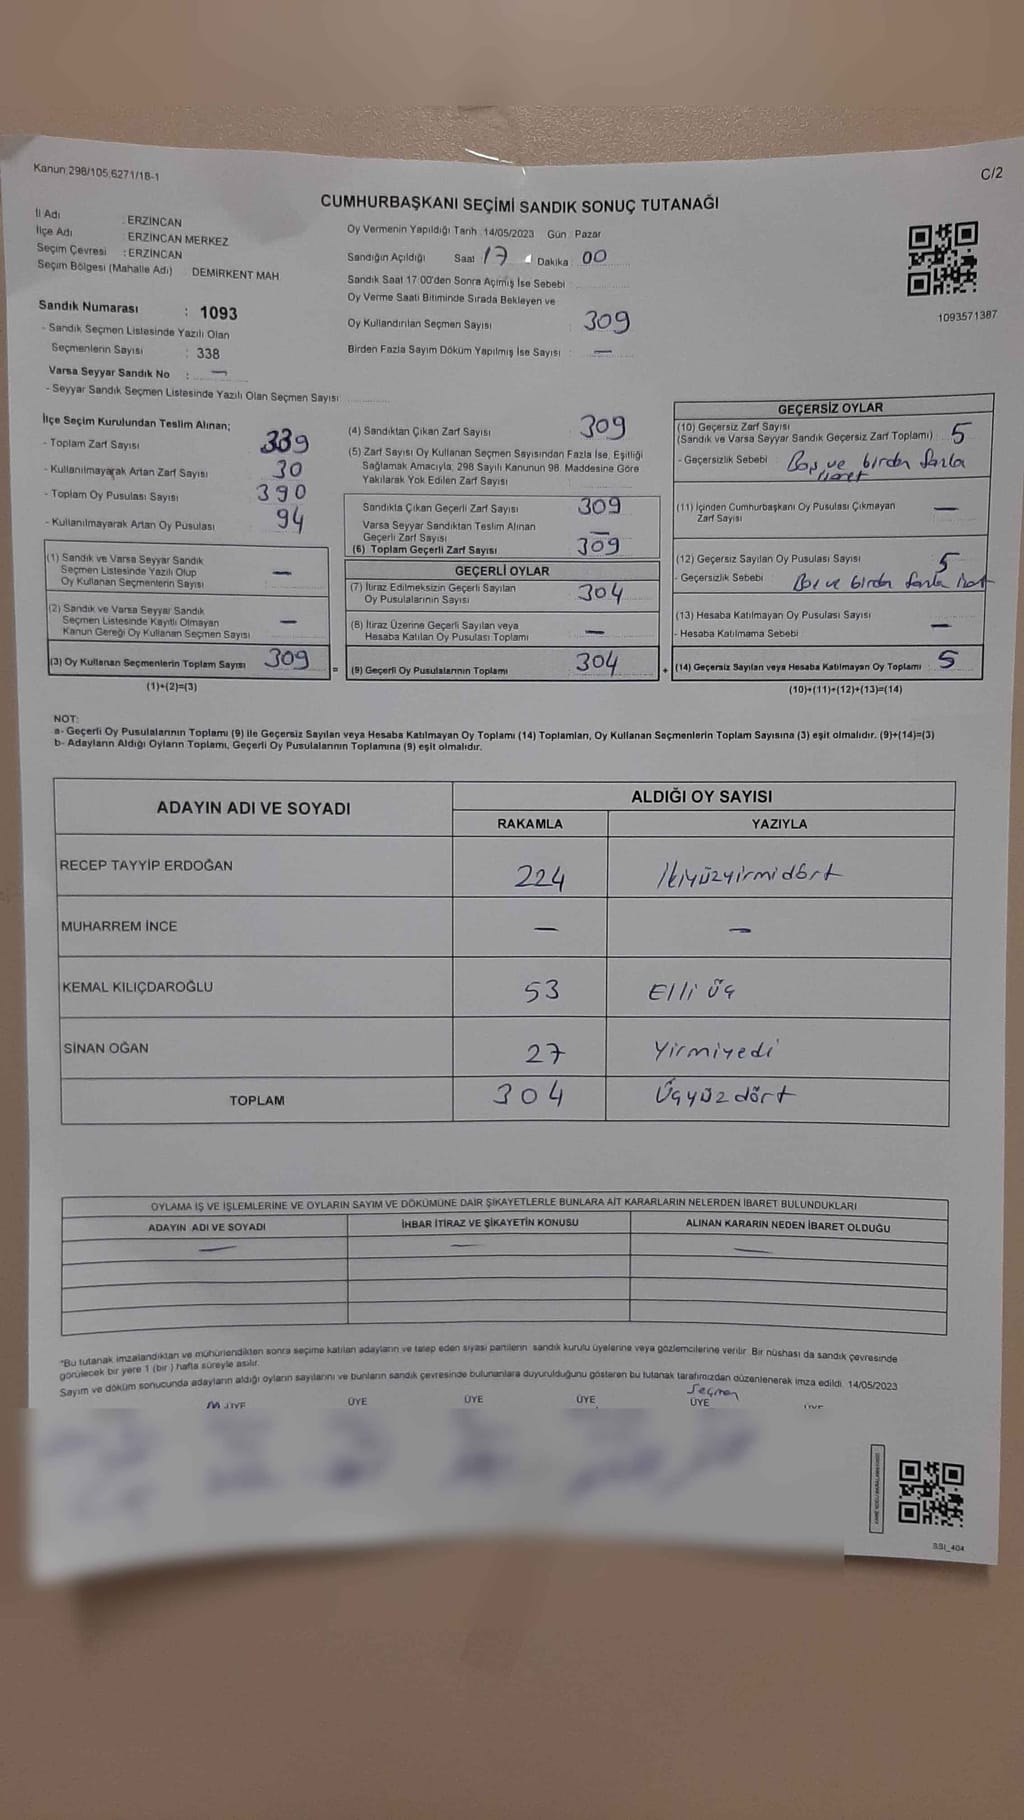 Kanun:298/105,6271/18-1
C/2
CUMHURBAŞKANI SEÇİMİ SANDIK SONUÇ TUTANAĞI
İl Adı : ERZİNCAN
İlçe Adı : ERZİNCAN MERKEZ
Seçim Çevresi : ERZİNCAN
Seçim Bölgesi (Mahalle Adı) DEMİRKENT MAH
Sandık Numarası : 1093
- Sandık Seçmen Listesinde Yazılı Olan
Seçmenlerin Sayısı : 338
Varsa Seyyar Sandık No : —
- Seyyar Sandık Seçmen Listesinde Yazılı Olan Seçmen Sayısı
Oy Vermenin Yapıldığı Tarih :14/05/2023 Gün : Pazar
Sandığın Açıldığı Saat 17 Dakika 00
Sandık Saat 17:00'den Sonra Açılmış İse Sebebi
Oy Verme Saati Bitiminde Sırada Bekleyen ve
Oy Kullandırılan Seçmen Sayısı : 309
Birden Fazla Sayım Döküm Yapılmış İse Sayısı : —
1093571387
İlçe Seçim Kurulundan Teslim Alınan;
- Toplam Zarf Sayısı 339
- Kullanılmayarak Artan Zarf Sayısı 30
- Toplam Oy Pusulası Sayısı 390
- Kullanılmayarak Artan Oy Pusulası 94
(1) Sandık ve Varsa Seyyar Sandık
Seçmen Listesinde Yazılı Olup
Oy Kullanan Seçmenlerin Sayısı —
(2) Sandık ve Varsa Seyyar Sandık
Seçmen Listesinde Kayıtlı Olmayan
Kanun Gereği Oy Kullanan Seçmen Sayısı —
(3) Oy Kullanan Seçmenlerin Toplam Sayısı 309
(1)+(2)=(3)
(4) Sandıktan Çıkan Zarf Sayısı 309
(5) Zarf Sayısı Oy Kullanan Seçmen Sayısından Fazla İse, Eşitliği
Sağlamak Amacıyla, 298 Sayılı Kanunun 98. Maddesine Göre
Yakılarak Yok Edilen Zarf Sayısı
Sandıkta Çıkan Geçerli Zarf Sayısı 309
Varsa Seyyar Sandıktan Teslim Alınan
Geçerli Zarf Sayısı —
(6) Toplam Geçerli Zarf Sayısı 309
GEÇERLİ OYLAR
(7) İtiraz Edilmeksizin Geçerli Sayılan
Oy Pusulalarının Sayısı 304
(8) İtiraz Üzerine Geçerli Sayılan veya
Hesaba Katılan Oy Pusulası Toplamı —
= (9) Geçerli Oy Pusulalarının Toplamı 304
GEÇERSİZ OYLAR
(10) Geçersiz Zarf Sayısı
(Sandık ve Varsa Seyyar Sandık Geçersiz Zarf Toplamı) 5
- Geçersizlik Sebebi : Boş ve birden fazla
(11) İçinden Cumhurbaşkanı Oy Pusulası Çıkmayan
Zarf Sayısı —
(12) Geçersiz Sayılan Oy Pusulası Sayısı 5
- Geçersizlik Sebebi : Boş ve birden fazla
(13) Hesaba Katılmayan Oy Pusulası Sayısı —
- Hesaba Katılmama Sebebi :
+ (14) Geçersiz Sayılan veya Hesaba Katılmayan Oy Toplamı 5
(10)+(11)+(12)+(13)=(14)
NOT:
a- Geçerli Oy Pusulalarının Toplamı (9) ile Geçersiz Sayılan veya Hesaba Katılmayan Oy Toplamı (14) Toplamları, Oy Kullanan Seçmenlerin Toplam Sayısına (3) eşit olmalıdır. (9)+(14)=(3)
b- Adayların Aldığı Oyların Toplamı, Geçerli Oy Pusulalarının Toplamına (9) eşit olmalıdır.
ADAYIN ADI VE SOYADI
ALDIĞI OY SAYISI
RAKAMLA YAZIYLA
RECEP TAYYİP ERDOĞAN 224 İkiyüzyirmidört
MUHARREM İNCE — —
KEMAL KILIÇDAROĞLU 53 Elli üç
SİNAN OĞAN 27 Yirmiyedi
TOPLAM 304 Üçyüzdört
OYLAMA İŞ VE İŞLEMLERİNE VE OYLARIN SAYIM VE DÖKÜMÜNE DAİR ŞİKAYETLERLE BUNLARA AİT KARARLARIN NELERDEN İBARET BULUNDUKLARI
ADAYIN ADI VE SOYADI İHBAR İTİRAZ VE ŞİKAYETİN KONUSU ALINAN KARARIN NEDEN İBARET OLDUĞU
— — —
*Bu tutanak imzalandıktan ve mühürlendikten sonra seçime katılan adayların ve talep eden siyasi partilerin sandık kurulu üyelerine veya gözlemcilerine verilir. Bir nüshası da sandık çevresinde
görülecek bir yere 1 (bir) hafta süreyle asılır.
Sayım ve döküm sonucunda adayların aldığı oyların sayılarını ve bunların sandık çevresinde bulunanlara duyurulduğunu gösteren bu tutanak tarafımızdan düzenlenerek imza edildi. 14/05/2023
Seçmen
ÜYE ÜYE ÜYE ÜYE ÜYE
SSI_404